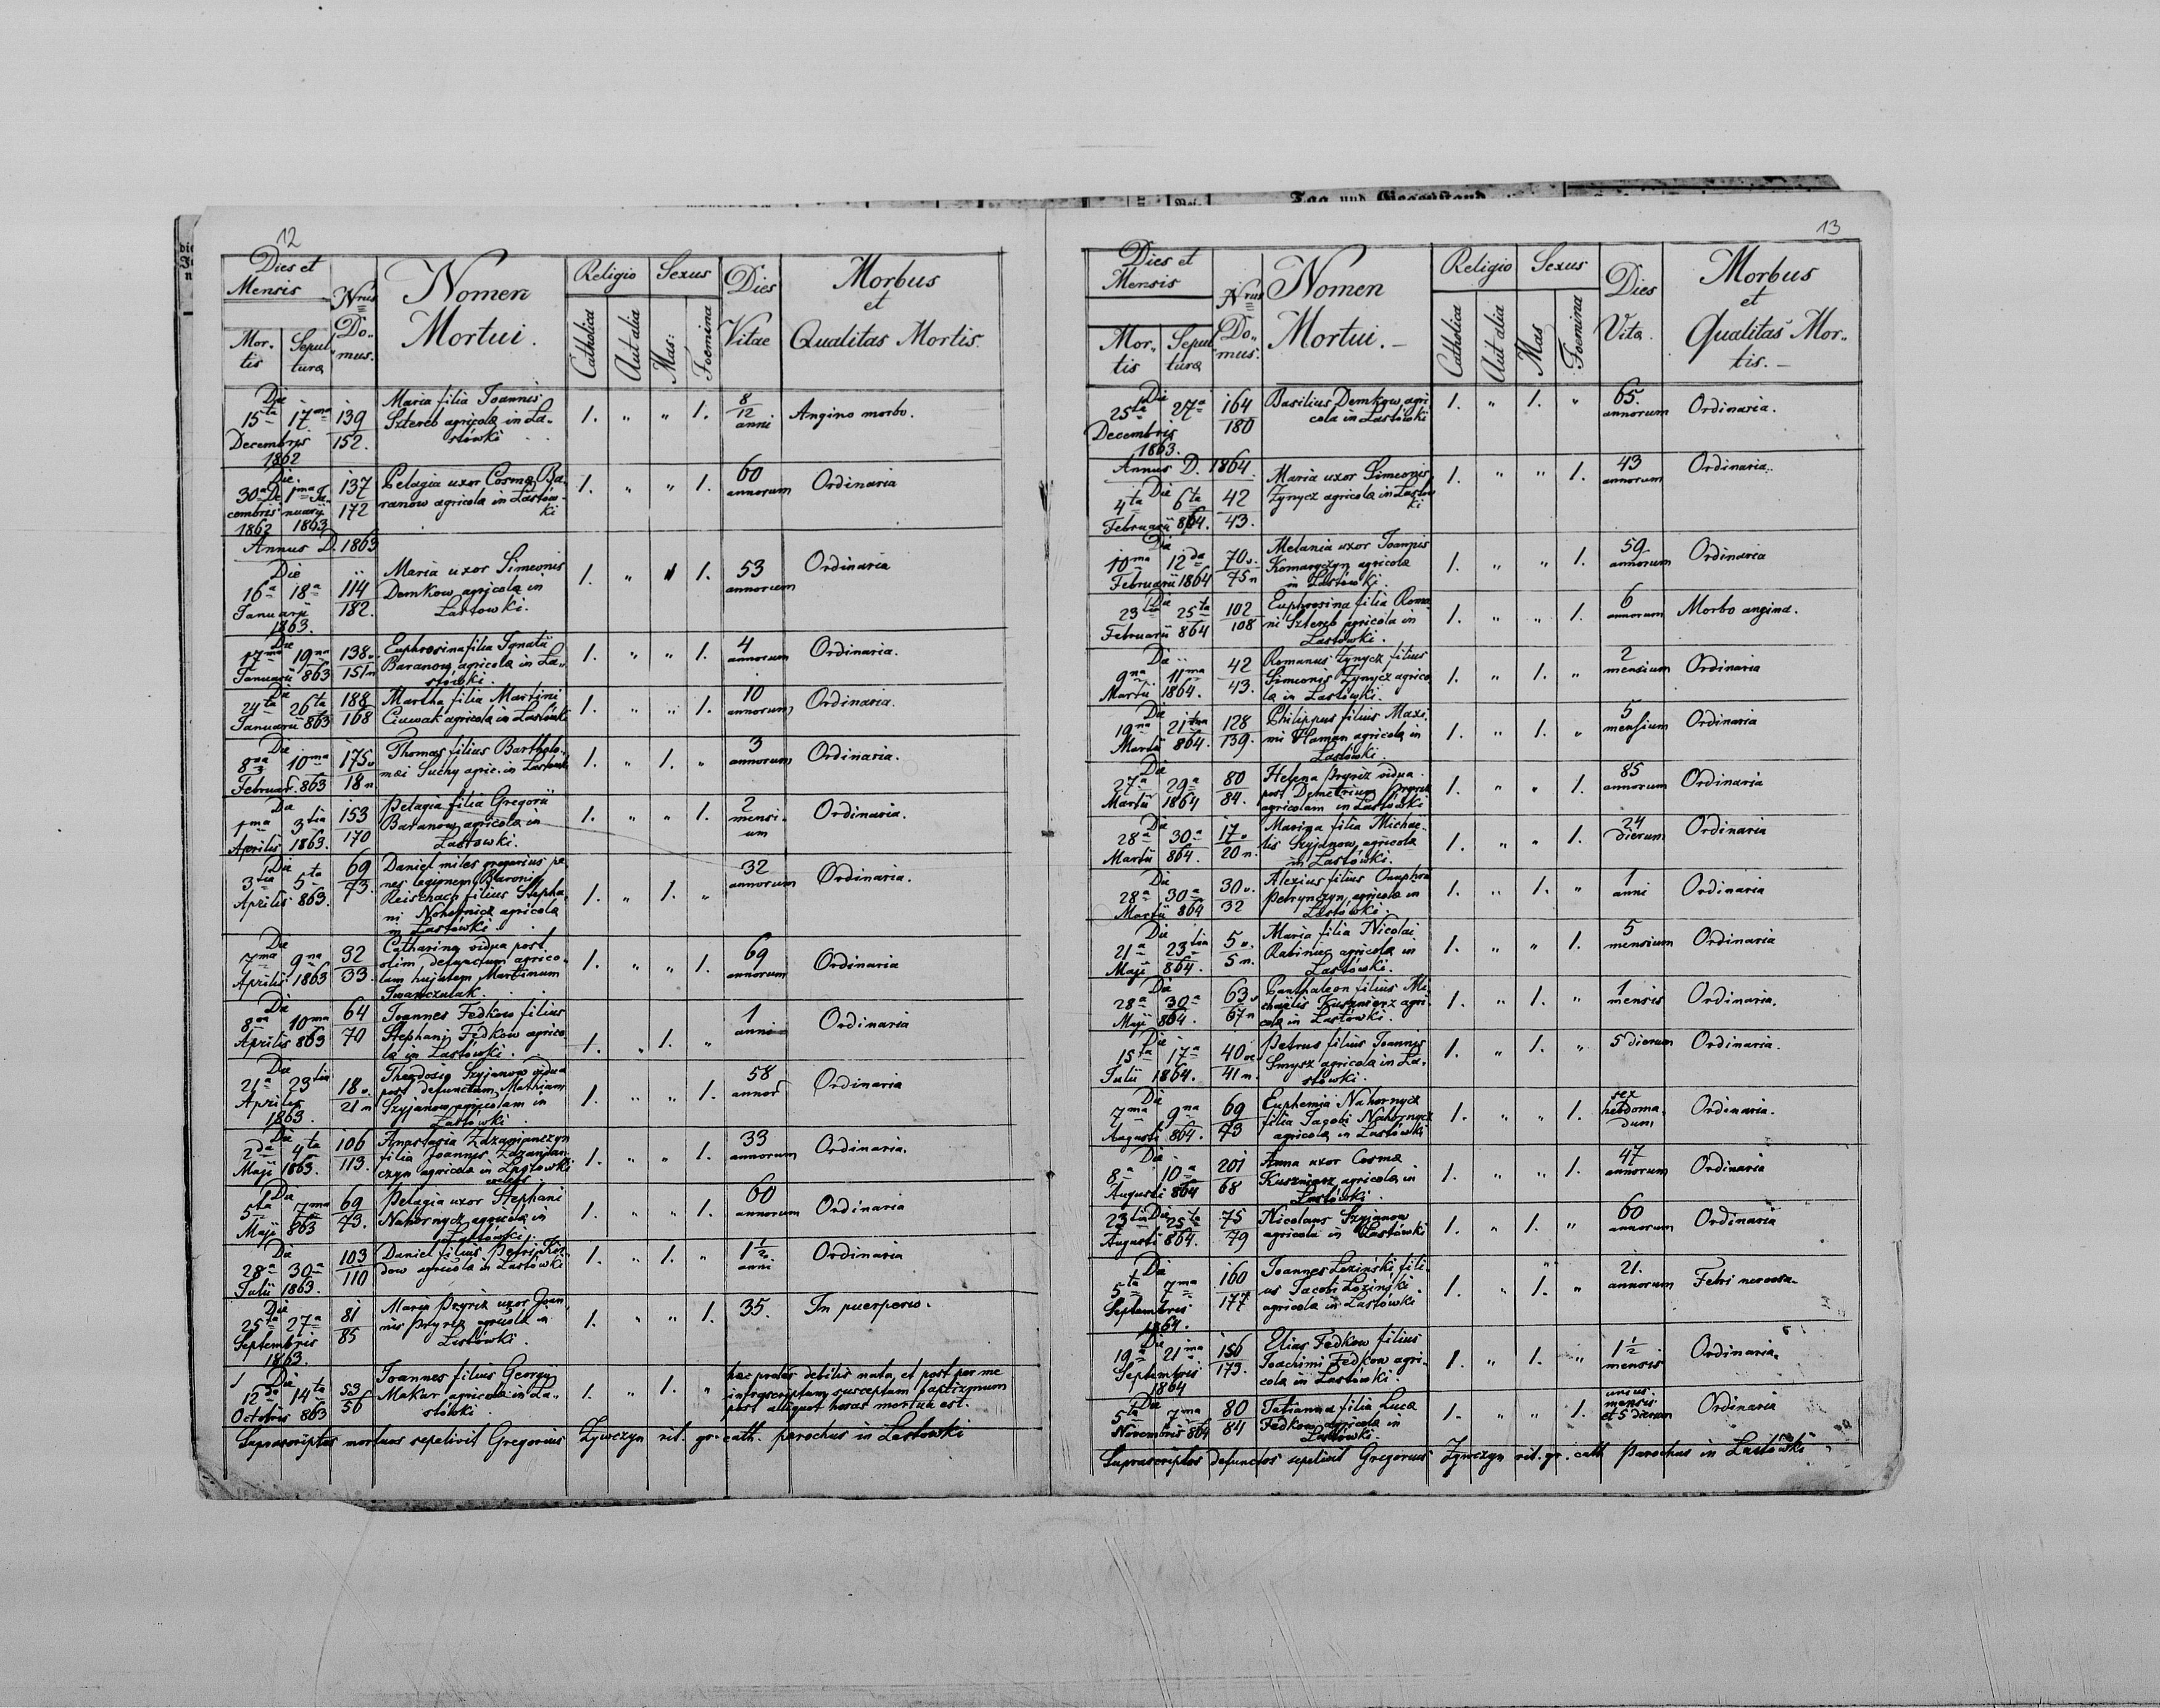 12
Dies et Mensis
Nrus Domus.
Nomen Mortui.
Religio
Sexus
Dies Vitae
Morbus et Qualitas Mortis
Mortis
Sepultura
Catholica
Aut alia
Mas:
Foemina
Die 15ta 17ma Decembris 1862 139 152. Maria filia Joannis
Sztereb agricola in La-
stówki 1. " " 1. 8/12 anni Angino morbo.
Die 30a Decembris 1862 1ma Januarii 1863 137 172 Pelagia uxor Cosmæ Ba-
ranow agricola in Lastów-
ki 1. " " 1. 60 annorum Ordinaria
Annus D. 1863
Die 16a 18a Januarii 1863. 114 182. Maria uxor Simeonis
Demkow agricola in
Lastowki. 1. " 1. 53 annorum Ordinaria
Die 17ma 19na Januarii 863 138v 151n Euphrosina filia Ignatii
Baranow agricola in La-
stówki. 1. " " 1. 4 annorum Ordinaria.
Die 24ta 26ta Januarii 863 188 168 Martha filia Martini
Ciuwak agricola in Lastówki 1. " " 1. 10 annorum Ordinaria.
Die 8va 10ma Februar. 863 175v 18n Thomas filius Bartholo-
mæi Suchy agric. in Lastowki 1. " 1. " 3 annorum Ordinaria.
Die 1ma 3tia Aprilis 1863. 153 170 Pelagia filia Gregorii
Baranow agricola in
Lastowki. 1. " " 1. 2 mensium Ordinaria.
Die 3tia 5ta Aprilis 863. 69 73. Daniel miles gregarius pe-
nes legionem Baronis
Reischach filius Stepha-
ni Nohornicz agricola
in Lastówki 1. " 1. " 32 annorum Ordinaria.
Die 7ma 9na Aprilis 1863 32 33. Catharina vidua post
olim defunctum agrico-
lam hujatem Martinum
Iwanczulak. 1. " " 1. 69 annorum Ordinaria
Die 8va 10ma Aprilis 863 64 70 Joannes Fedkow filius
Stephani Fedkow agrico-
la in Lastówki. 1. " 1. " 1 anni Ordinaria
Die 21a 23tia Aprilis 1863. 18v. 21n Theodosia Szyjanow vidua
post defunctum Mathiam
Szyjanow agricolam in
Lastowki 1. " " 1. 58 annor Ordinaria
Die 2da 4ta Maji 1863. 106 113. Anastasia Zdzanianczyn
filia Joannis Zdzanian-
czyn agricola in Lastowki 1. " " 1. 33 annorum Ordinaria.
Die 5ta 7ma Maji 863 69 73. Pelagia uxor Stephani
Nahornycz agricola in
Lastówki. 1. " " 1. 60 annorum Ordinaria
Die 28a 30a Julii 1863. 103 110 Daniel filius Petri
dow agricola in Lastówki 1. " 1. " 1 1/2 anni Ordinaria
Die 25ta 27a Septembris 1863. 81 85 Maria Pryriz uxor Joan-
nis Pryriz agricola in
Lastówki. 1. " " 1. 35. In puerperio.
Die 12da 14ta Octobris 863 53 56 Joannes filius Georgii
Makar agricola in La-
stówki. 1. " 1. " hæc proles debilis nata, et post per me
infrascriptum susceptum baptizmum
post aliquot horas mortua est.
Suprascriptos mortuos sepelivit Gregorius Zynczyn rit. gr. cath. parochus in Lastowki
13
Dies et Mensis
Nrus Domus.
Nomen Mortui.
Religio
Sexus
Dies Vita.
Morbus et Qualitas Mortis.
Mortis
Sepultura
Catholica
Aut alia
Mas
Foemina
Die 25ta 27a Decembris 1863. 164 180 Basilius Demkow agri-
cola in Lastówki 1. " 1. " 65. annorum Ordinaria.
Annus D. 1864
Die 4ta 6ta Februarii 864. 42 43. Maria uxor Simeonis
Zynycz agricola in Lastow
ki 1. " " 1. 43 annorum Ordinaria.
Die 10ma 12da Februarii 1864 70v. 75n Melania uxor Joannis
Komarczyn agricola
in Lastówki. 1. " " 1. 59 annorum Ordinaria
Die 23tia 25ta Februarii 864 102 108 Euphrosina filia Roma-
ni Sztereb agricola in
Lastówki. 1. " " 1. 6 annorum Morbo angina.
Die 9na 11ma Martii 1864. 42 43. Romanus Zynycz filius
Simeonis Zynycz agrico-
la in Lastówki. 1. " 1. " 2 mensium Ordinaria
Die 19na 21ma Martii 864. 128 139. Philippus filius Maxi-
mi Haman agricola in
Lastówki. 1. " 1. " 5 mensium Ordinaria
Die 27a 29a Martii 1864 80 84. Helena Pryriz vidua
post Demetrium Pryriz
agricolam in Lastówki 1. " " 1. 85 annorum Ordinaria
Die 28a 30a Martii 864. 17v 20n. Marina filia Michae-
lis Szyjanow agricola
in Lastówki. 1. " " 1. 24 dierum Ordinaria
Die 28a 30a Martii 864 30v. 32 Alexius filius Onuphri
Petrynczyn agricola in
Lastówki. 1. " 1. " 1 anni Ordinaria
Die 21a 23tia Maji 864. 5v. 5n. Maria filia Nicolai
Rabiniec agricola in
Lastówki. 1. " " 1. 5 mensium Ordinaria
Die 28a 30a Maji 864. 63v 67n Panthaleon filius Mi-
chaelis Kusznierz agri-
cola in Lastówki. 1. " 1. " 1 mensis Ordinaria.
Die 15ta 17a Julii 1864. 40v 41n. Petrus filius Joannis
Smysz agricola in La-
stówki. 1. " 1. " 5 dierum Ordinaria.
Die 7ma 9na Augusti 864. 69 73 Euphemia Nahornycz
filia Jacobi Nahornycz
agricola in Lastówki 1. " " 1. sex hebdomadum Ordinaria.
Die 8a 10a Augusti 864 201 68 Anna uxor Cosmæ
Kusznierz agricola in
Lastówki. 1. " " 1. 47 annorum Ordinaria
Die 23tia 25ta Augusti 864. 75 79 Nicolaus Szyjanow
agricola in Lastówki 1. " 1. " 60 annorum Ordinaria
Die 5ta 7ma Septembris 1864. 160 177 Joannes Lozinski fili-
us Jacobi Lozinski
agricola in Lastówki. 1. " 1. " 21. annorum Febri nervosa
Die 19a 21ma Septembris 1864 156 173. Elias Fedkow filius
Joachimi Fedkow agri-
cola in Lastówki. 1. " 1. " 1 1/2 mensis Ordinaria.
Die 5ta 7ma Novembris 864 80 84 Tatianna filia Luca
Fedkow agricola in
Lastówki. 1. " " 1. unius mensis et 5 dierum Ordinaria
Suprascriptos defunctos sepelivit Gregorius Zynczyn rit. gr. cath Parochus in Lastówki